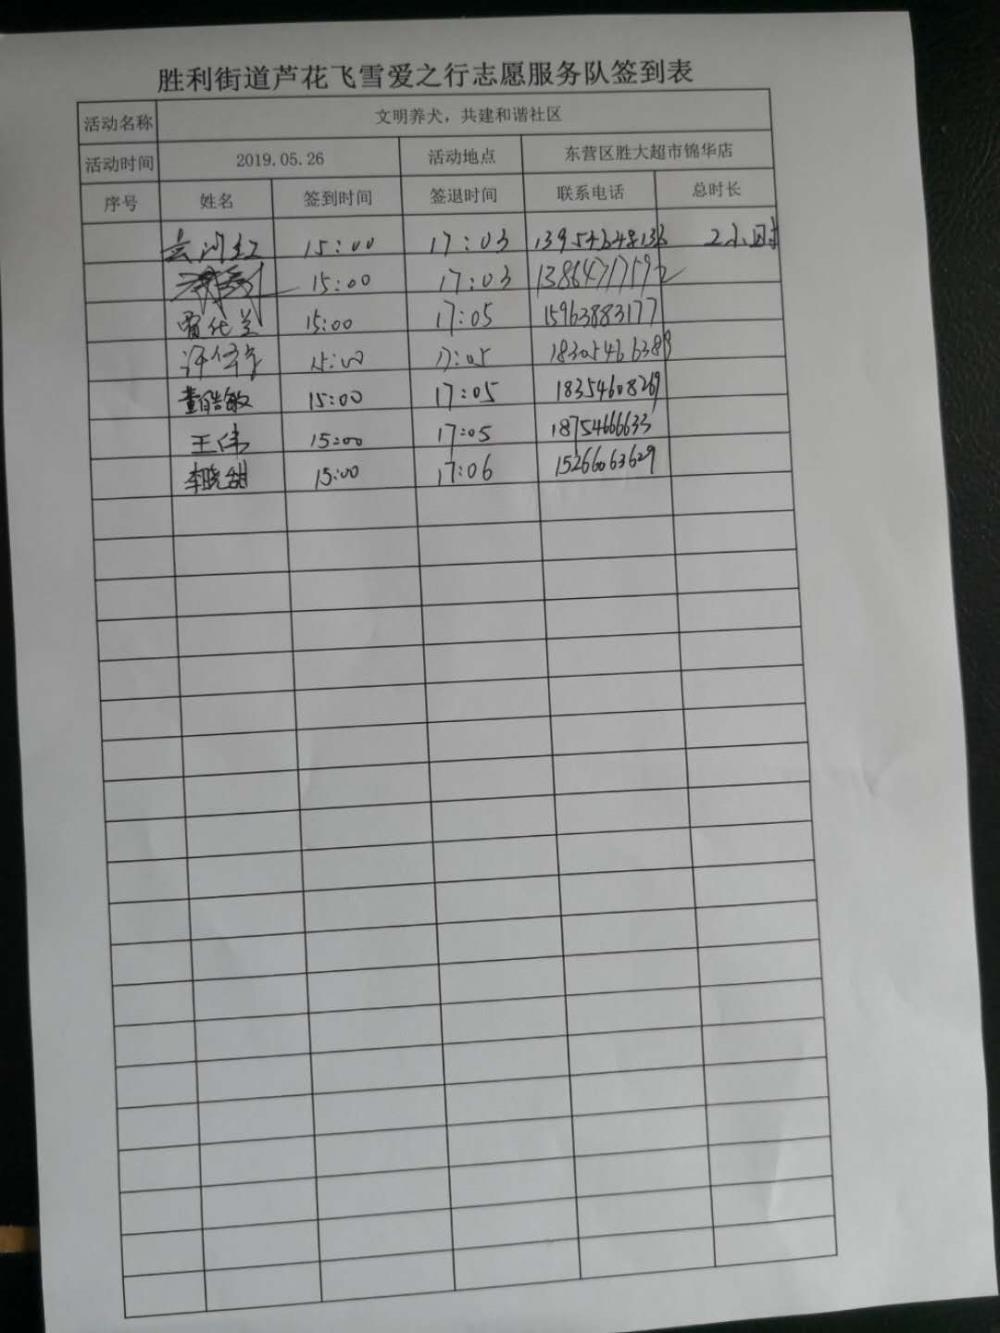 胜利街道芦花飞雪爱之行志愿服务队签到表
活动名称 文明养犬，共建和谐社区
活动时间 2019.05.26 活动地点 东营区胜大超市锦华店
序号 姓名 签到时间 签退时间 联系电话 总时长
15:00 17:03 2小时
15:00 17:03
15:00 17:05 15963883177
15:00 17:05
董皓敏 15:00 17:05 18354608269
王伟 15:00 17:05 18754666633
李晓甜 15:00 17:06 15266063629